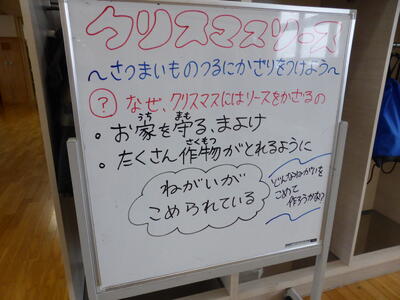 クリスマスリース
～さつまいものつるにかざりをつけよう～
? なぜ、クリスマスにはリースをかざるの
うち まも
・お家を守る、まよけ
さくもつ
・たくさん作物がとれるように
ねがいが
こめられている
どんなねがいを
こめて
作ろうかな?